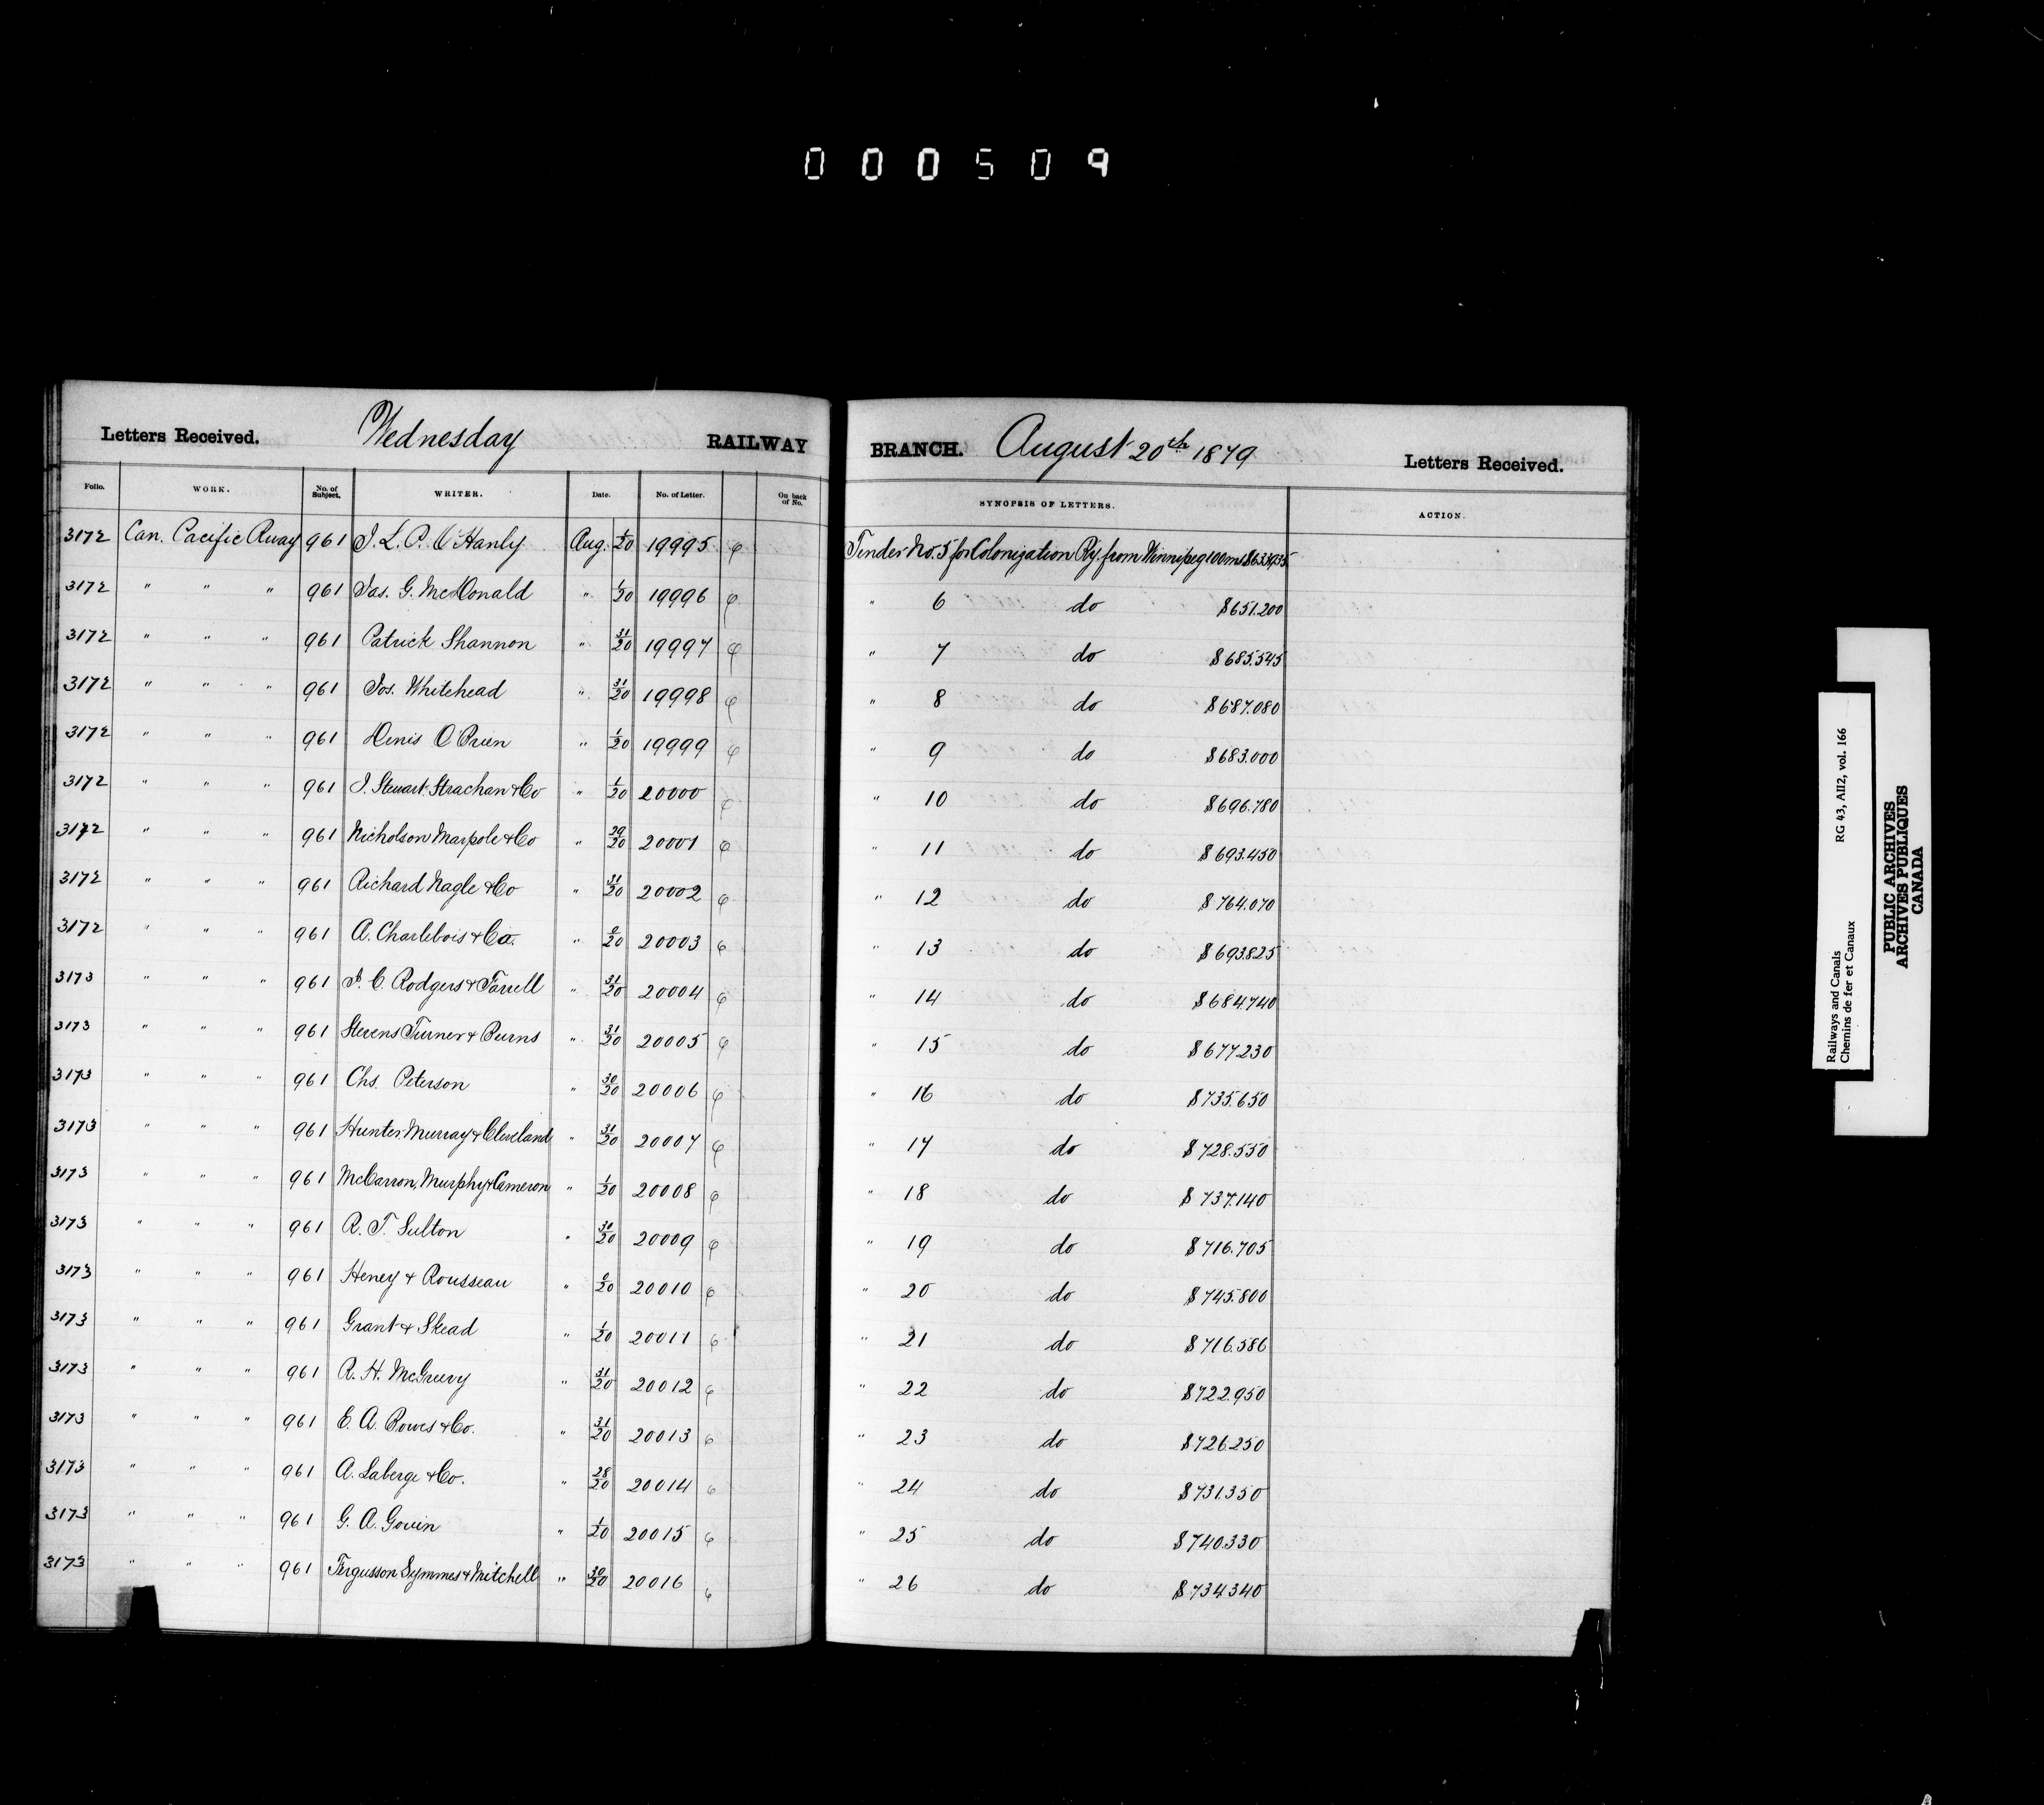 000509
Letters Received. Wednesday RAILWAY BRANCH. August 20th 1879 Letters Received.
Folio. WORK. No. of Subject. WRITER. Date. No. of Letter. On back of No. SYNOPSIS OF LETTERS. ACTION.
3172 Can. Pacific Rway 961 J. L. P. O'Hanly Aug. 1/20 19995 Tender No. 5 for Colonization Ry. from Winnipeg 100 m
3172 " " " 961 Jas. G. McDonald " 1/20 19996 " 6 do $651.200
3172 " " " 961 Patrick Shannon " 31/20 19997 " 7 do $685.545
3172 " " " 961 Jos. Whitehead " 31/20 19998 " 8 do $687.080
3172 " " " 961 Denis O'Brien " 1/20 19999 " 9 do $683.000
3172 " " " 961 J. Stewart Strachan & Co " 1/20 20000 " 10 do $696.780
3172 " " " 961 Nicholson Marpole & Co " 29/20 20001 " 11 do $693.450
3172 " " " 961 Richard Nagle & Co " 31/20 20002 " 12 do $764.070
3172 " " " 961 A. Charlebois & Co. " 0/20 20003 " 13 do $693.825
3173 " " " 961 C. Rodgers & Farrell " 31/20 20004 " 14 do $684740
3173 " " " 961 Stevens Turner & Burns " 31/20 20005 " 15 do $677230
3173 " " " 961 Chs. Peterson " 30/20 20006 " 16 do $735.650
3173 " " " 961 Hunter Murray & Cleveland " 31/20 20007 " 17 do $728.550
3173 " " " 961 McCarron, Murphy & Cameron " 1/20 20008 " 18 do $737.140
3173 " " " 961 R. T. Sutton " 30/20 20009 " 19 do $716.705
3173 " " " 961 Heney & Rousseau " 0/20 20010 " 20 do $745.800
3173 " " " 961 Grant & Skead " 1/20 20011 " 21 do $716.586
3173 " " " 961 R. H. McGreevy " 31/20 20012 " 22 do $722.950
3173 " " " 961 E. A. Bowes & Co. " 31/20 20013 " 23 do $726.250
3173 " " " 961 A. Laberge & Co. " 28/20 20014 " 24 do $731.350
3173 " " " 961 G. A. Gouin " 1/20 20015 " 25 do $740.330
3173 " " " 961 Fergusson Symmes & Mitchell " 30/20 20016 " 26 do $734340
Railways and Canals RG 43, AII2, vol. 166
Chemins de fer et Canaux
PUBLIC ARCHIVES
ARCHIVES PUBLIQUES
CANADA